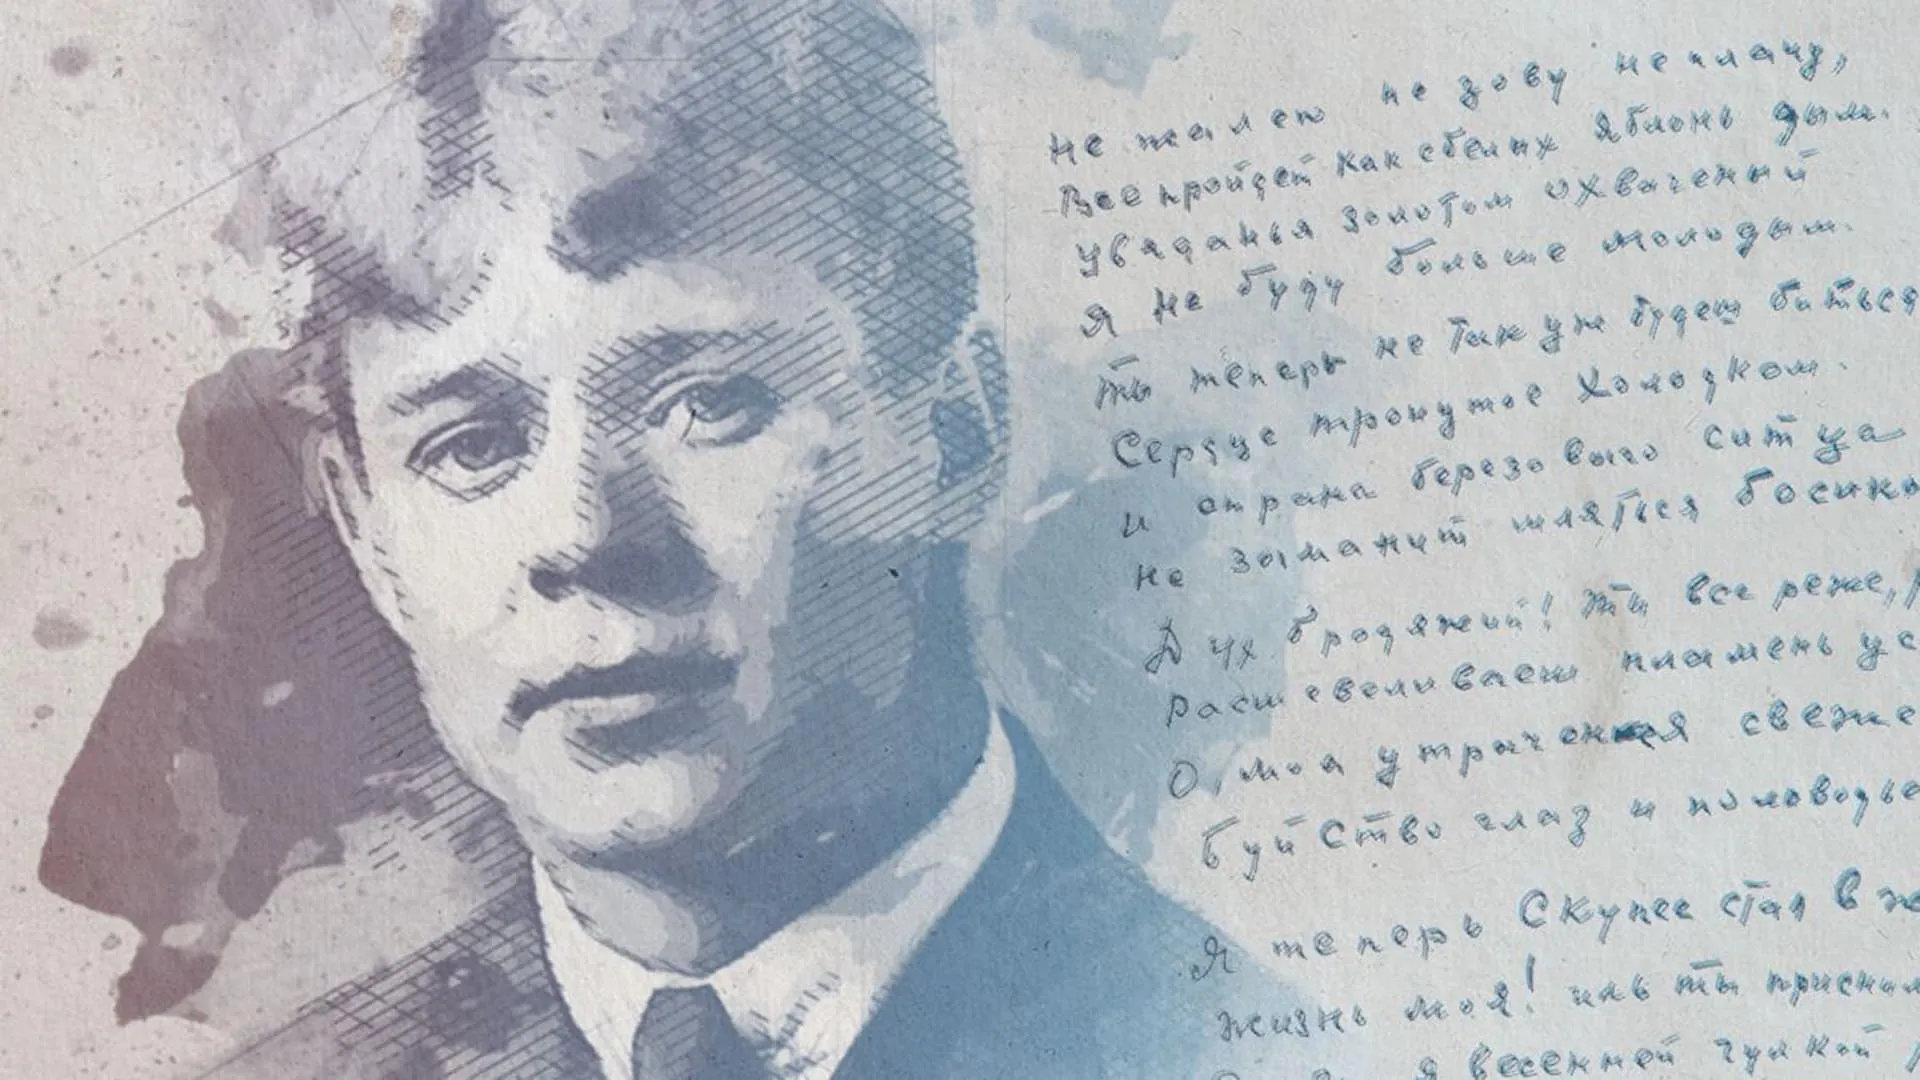 не жалею не зову не плачу,
Все пройдет как с белых яблонь дым.
увяданья золотом охваченный
Я не буду больше молодым.
ты теперь не так уж будеш биться
Сердце тронутое холодком.
и страна березового ситца
не заманит шляться босиком
Дух бродяжий! ты все реже, р
Расшевеливаеш пламень ус
О, моя утраченная свеже
буйство глаз и половодье
Я теперь Скупее стал в ж
жизнь моя! иль ты приснил
я весенней гулкой р